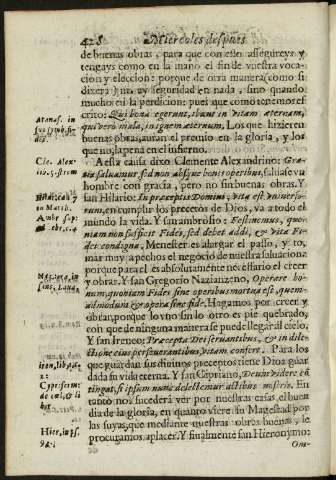 428 Miercoles despues
de buenas obras, para que con ellas assegureys y
tengays como en la mano el fin de vuestra voca-
cion y eleccion: porque de otra manera (como si
dixera) no ay seguridad en nada, sino quando
mucho en la perdicion: pues que como tenemos es-
crito: Qui bona egerunt, ibunt in vitam æternam,
qui vero mala, in ignem æternum, Los que hizieren
buenas obras, auran el premio en la gloria, y los
que no, la pena en el infierno.
A esta causa dixo Clemente Alexandrino: Gra-
tia saluamur, sed non absque bonis operibus, saluase el
hombre con gracia, pero no sin buenas obras. Y
san Hilario: In præceptis Domini, vita est vniuerso-
rum, en cumplir los preceptos de Dios, va a todo el
mundo la vida. Y san Ambrosio: Festinemus, quo-
niam non sufficit Fides, sed debet addi, & vita Fi-
dei condigna, Menester es alargar el passo, y to-
mar muy a pechos el negocio de nuestra saluacion
porque para el es absolutamente necessario el creer
y obrar. Y san Gregorio Nazianzeno, Operare bo-
num, quoniam Fides sine operibus mortua est, quem-
admodum & opera sine fide. Hagamos por creer y
obrar, porque lo vno sin lo otro es pie quebrado,
con que de ninguna manera se puede llegar al cielo.
Y san Ireneo: Præcepta Dei seruantibus, & in dile-
ctione eius perseuerantibus, vitam confert. Para los
que guardan sus diuinos preceptos tiene Dios guar
dada su vida eterna. Y san Cypriano, Deum videre con-
tinget, si ipsum nunc delectemur actibus nostris. En
tanto nos sucedera ver por nuestras casas el buen
dia de la gloria, en quanto viere su Magestad por
las suyas, que mediante nuestras obras buenas, le
procuramos aplacer. Y finalmente san Hieronymo:
Om-
Atanas. in
Cle. Alex-
Hilar.
in Matth.
Ambr. sup.
Naz.
Iren, lib.
Cypr.
Hier,